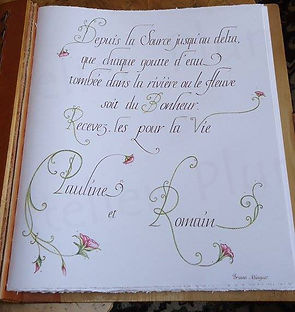 Depuis la Source jusqu'au delta,
que chaque goutte d'eau
tombée dans la rivière ou le fleuve
soit du Bonheur.
Recevez.les pour la Vie
Pauline
et
Romain